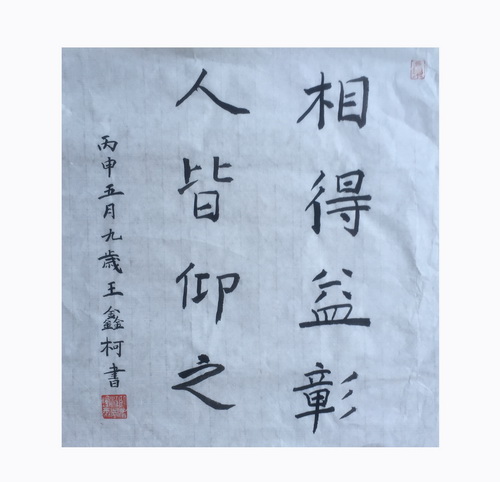 相得益彰
人皆仰之
丙申五月九歲王鑫柯書